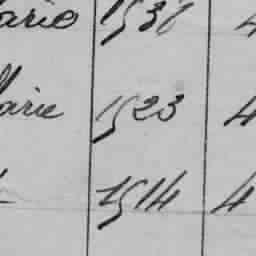 arie 1536 4
arie 1523 4
1514 4